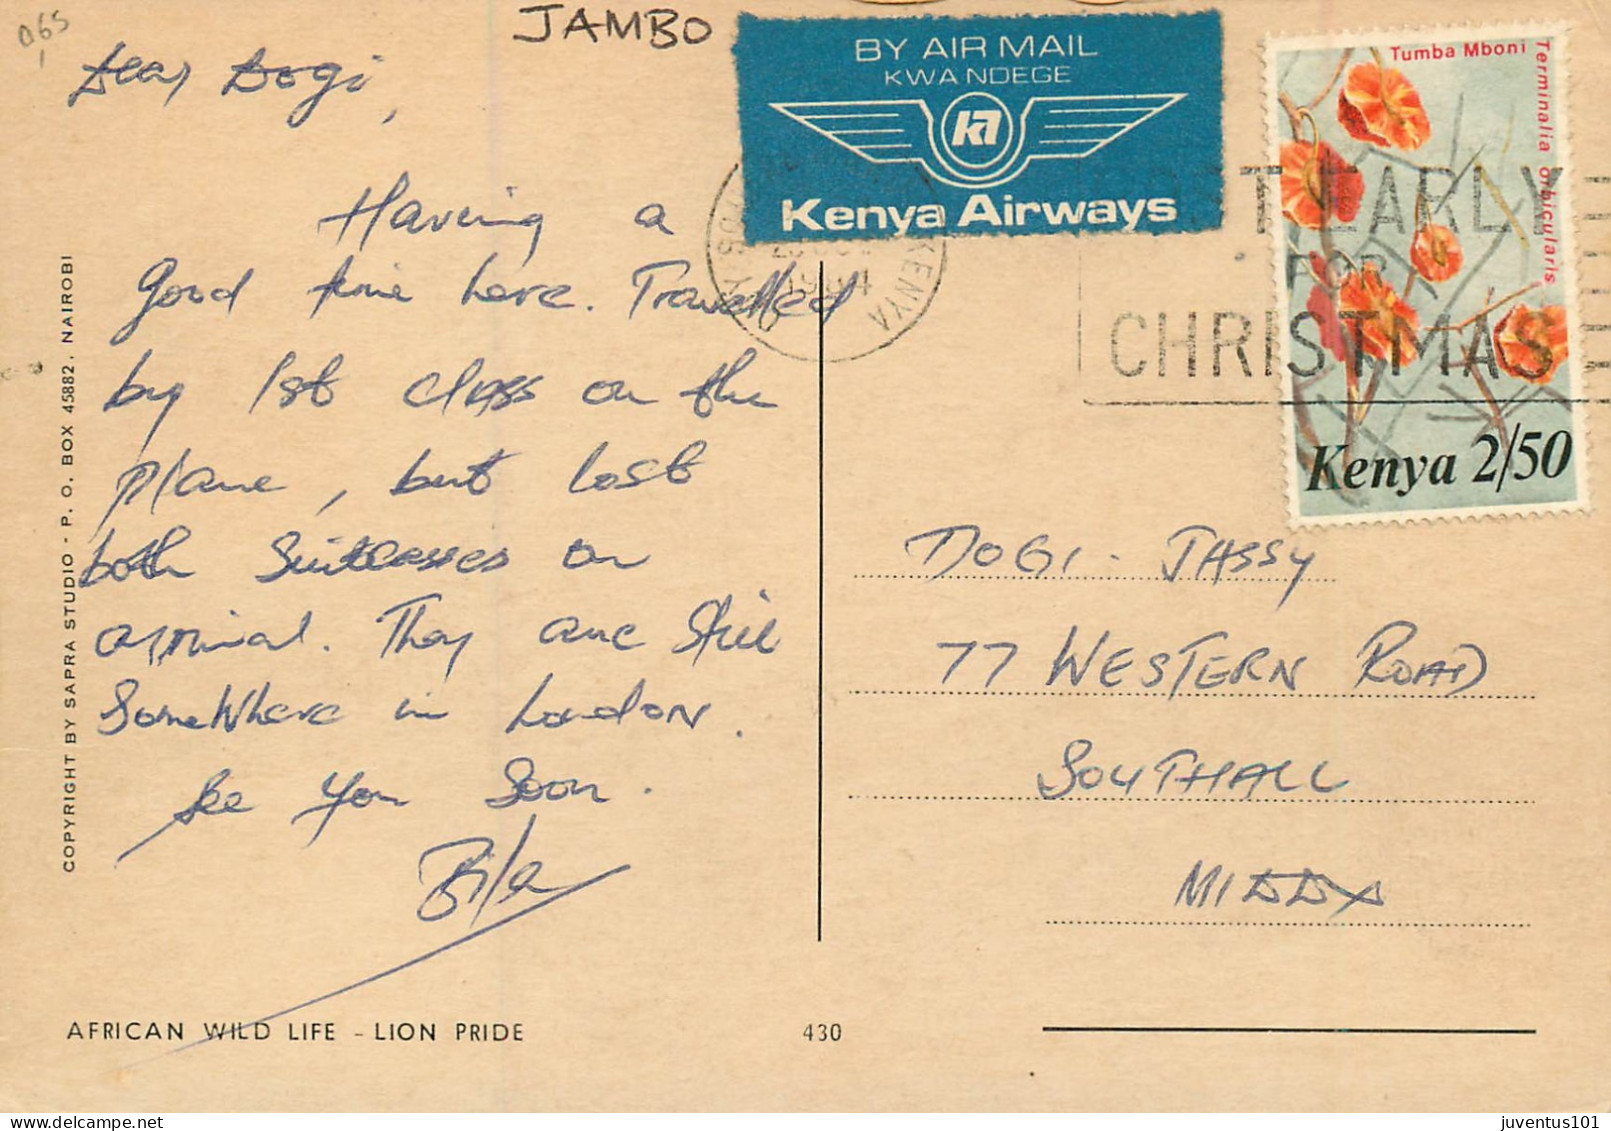 065
JAMBO
BY AIR MAIL
KWA NDEGE
Kenya Airways
Tumba Mboni
Terminalia orbicularis
Kenya 2/50
KENYA
1984
EARLY
FOR
CHRISTMAS
Dear Dogi,
Having a
good time here. Travelled
by 1st class on the
plane, but lost
both Suitcases on
arrival. They are Still
SomeWhere in London.
See you Soon.
Bila
DOGI. JASSY
77 WESTERN ROAD
SOUTHALL
MIDDX
COPYRIGHT BY SAPRA STUDIO - P. O. BOX 45882, NAIROBI
AFRICAN WILD LIFE - LION PRIDE
430
juventus101